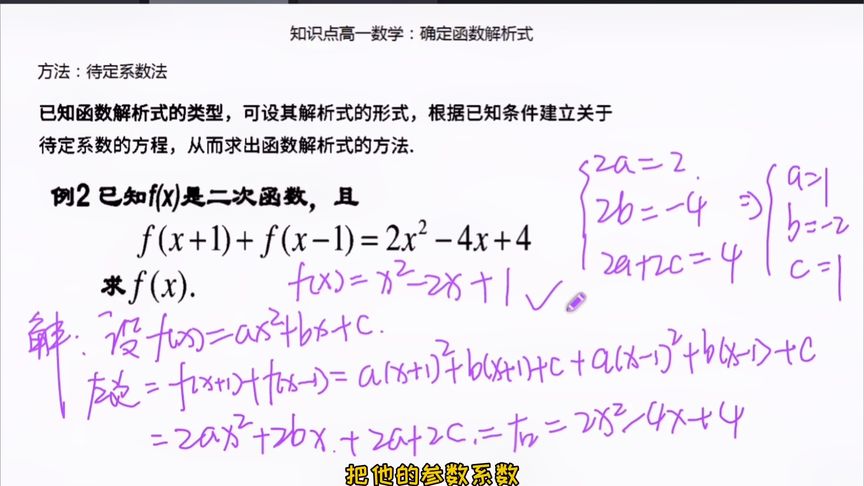 知识点高一数学：确定函数解析式
方法：待定系数法
已知函数解析式的类型，可设其解析式的形式，根据已知条件建立关于
待定系数的方程，从而求出函数解析式的方法.
例2 已知f(x)是二次函数，且
f(x+1)+f(x−1)=2x²−4x+4
求f(x).
f(x)=x²-2x+1 ✓
2a=2.
2b=-4
2a+2c=4
⇒
a=1
b=-2
c=1
解：设f(x)=ax²+bx+c.
左边=f(x+1)+f(x-1)=a(x+1)²+b(x+1)+c+a(x-1)²+b(x-1)+c
=2ax²+2bx+2a+2c.=右=2x²-4x+4
把他的参数系数